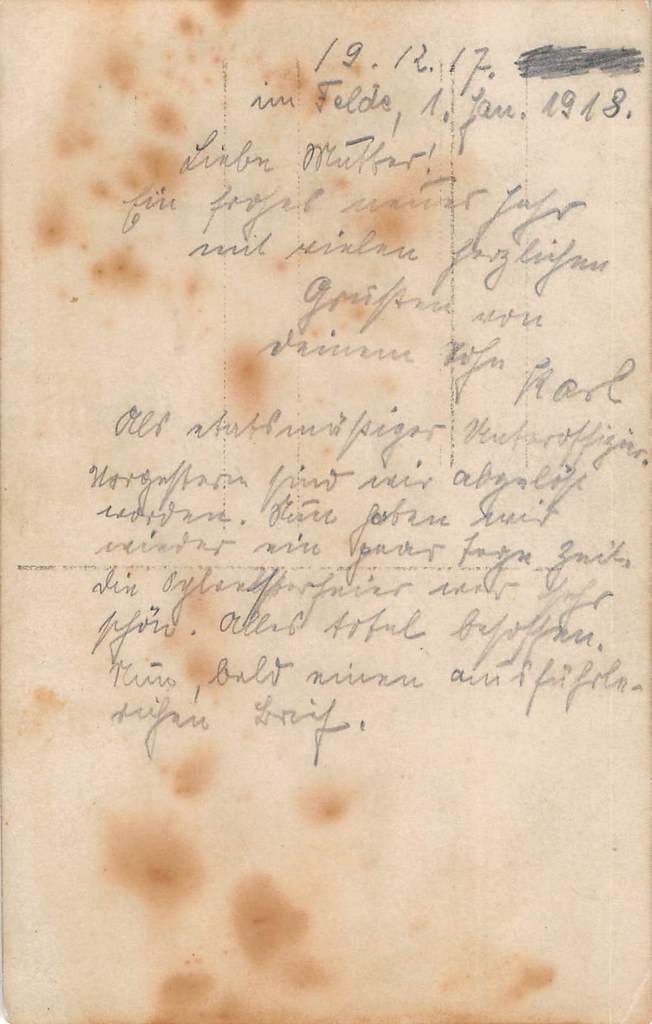 19. 12. 17.
im Felde, 1. Jan. 1918.
Liebe Mutter!
Ein frohes neues Jahr
mit vielen herzlichen
Grüßen von
deinem Sohn
Karl
Als etatsmäßiger Unteroffizier.
Vorgestern sind wir abgelöst
worden. Nun haben wir
wieder ein paar Tage Zeit.
Die Sylvesterfeier war sehr
schön. Alles total besoffen.
Nun, bald einen ausführle-
richen Brief.